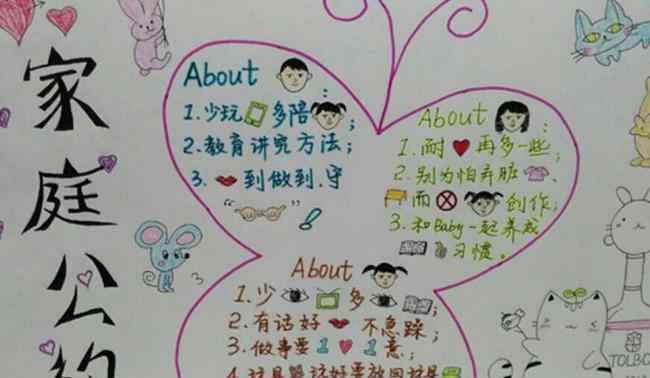 家庭公约
About :
1.少玩 多陪 ;
2.教育讲究方法;
3. 到做到.守
“ ”!
About :
1.耐 再多一些;
2.别为怕弄脏 、
而 创作;
3.和Baby一起养成
习惯。
About :
1.少 多 ;
2.有话好 不急躁;
3.做事要1 1意;
3
TOLBO